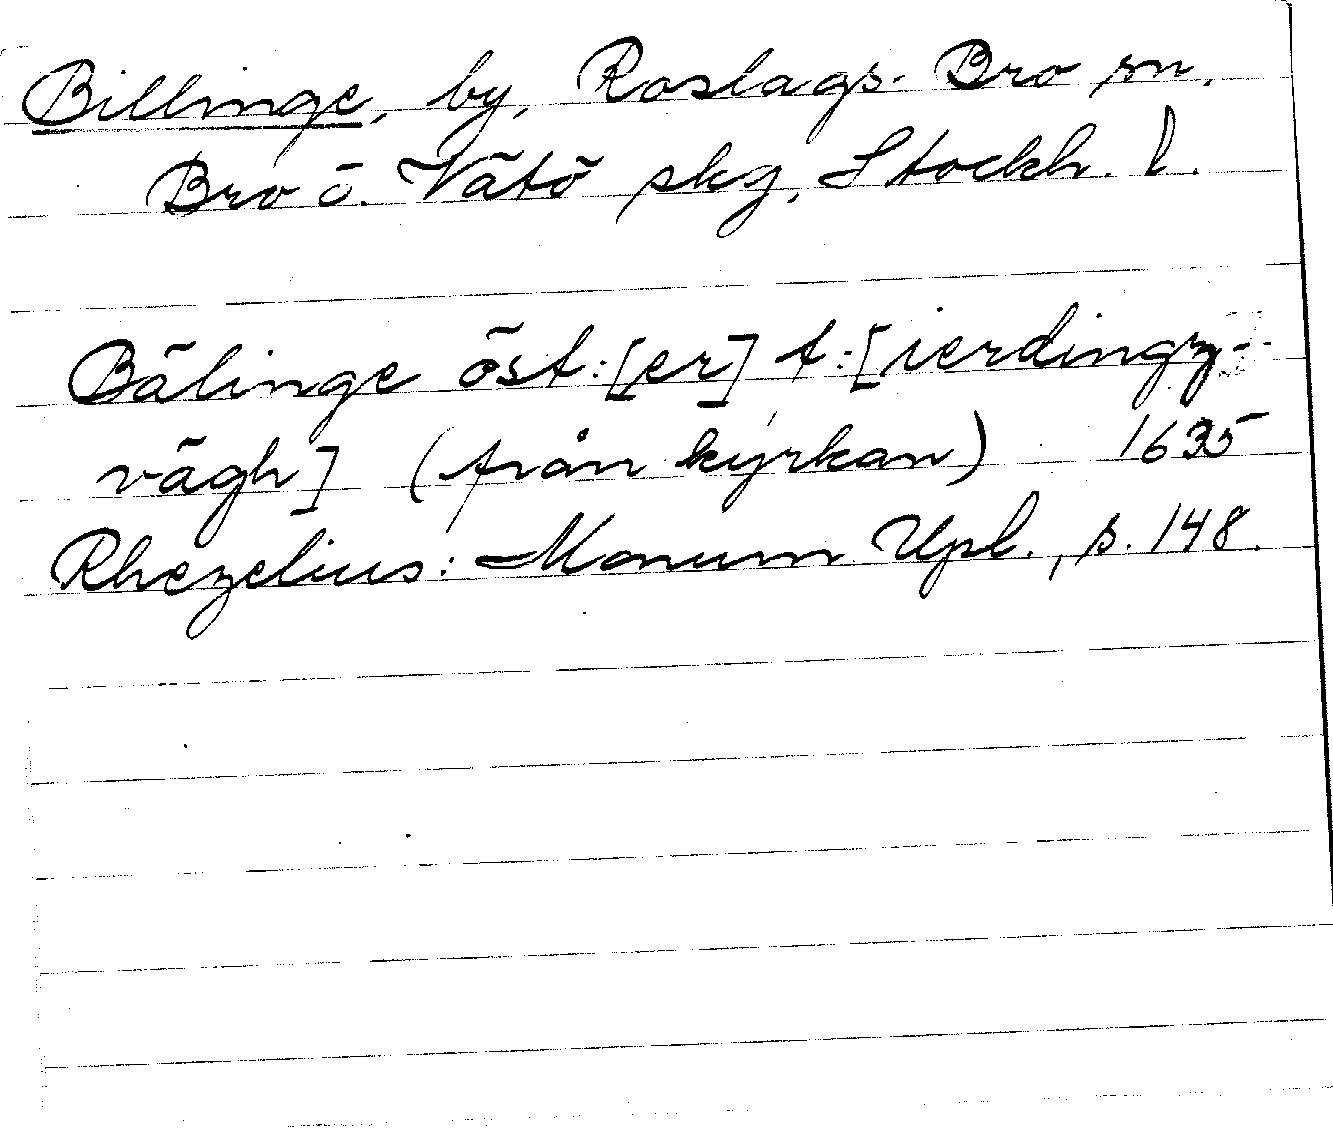 Billinge, by, Roslags-Bro sn,
Bro o. Vätö skg, Stockh. l.
Bälinge öst:[er] f:[ierdingz-
vägh] (från kyrkan) 1635
Rhezelius: Monum Upl., s. 148.